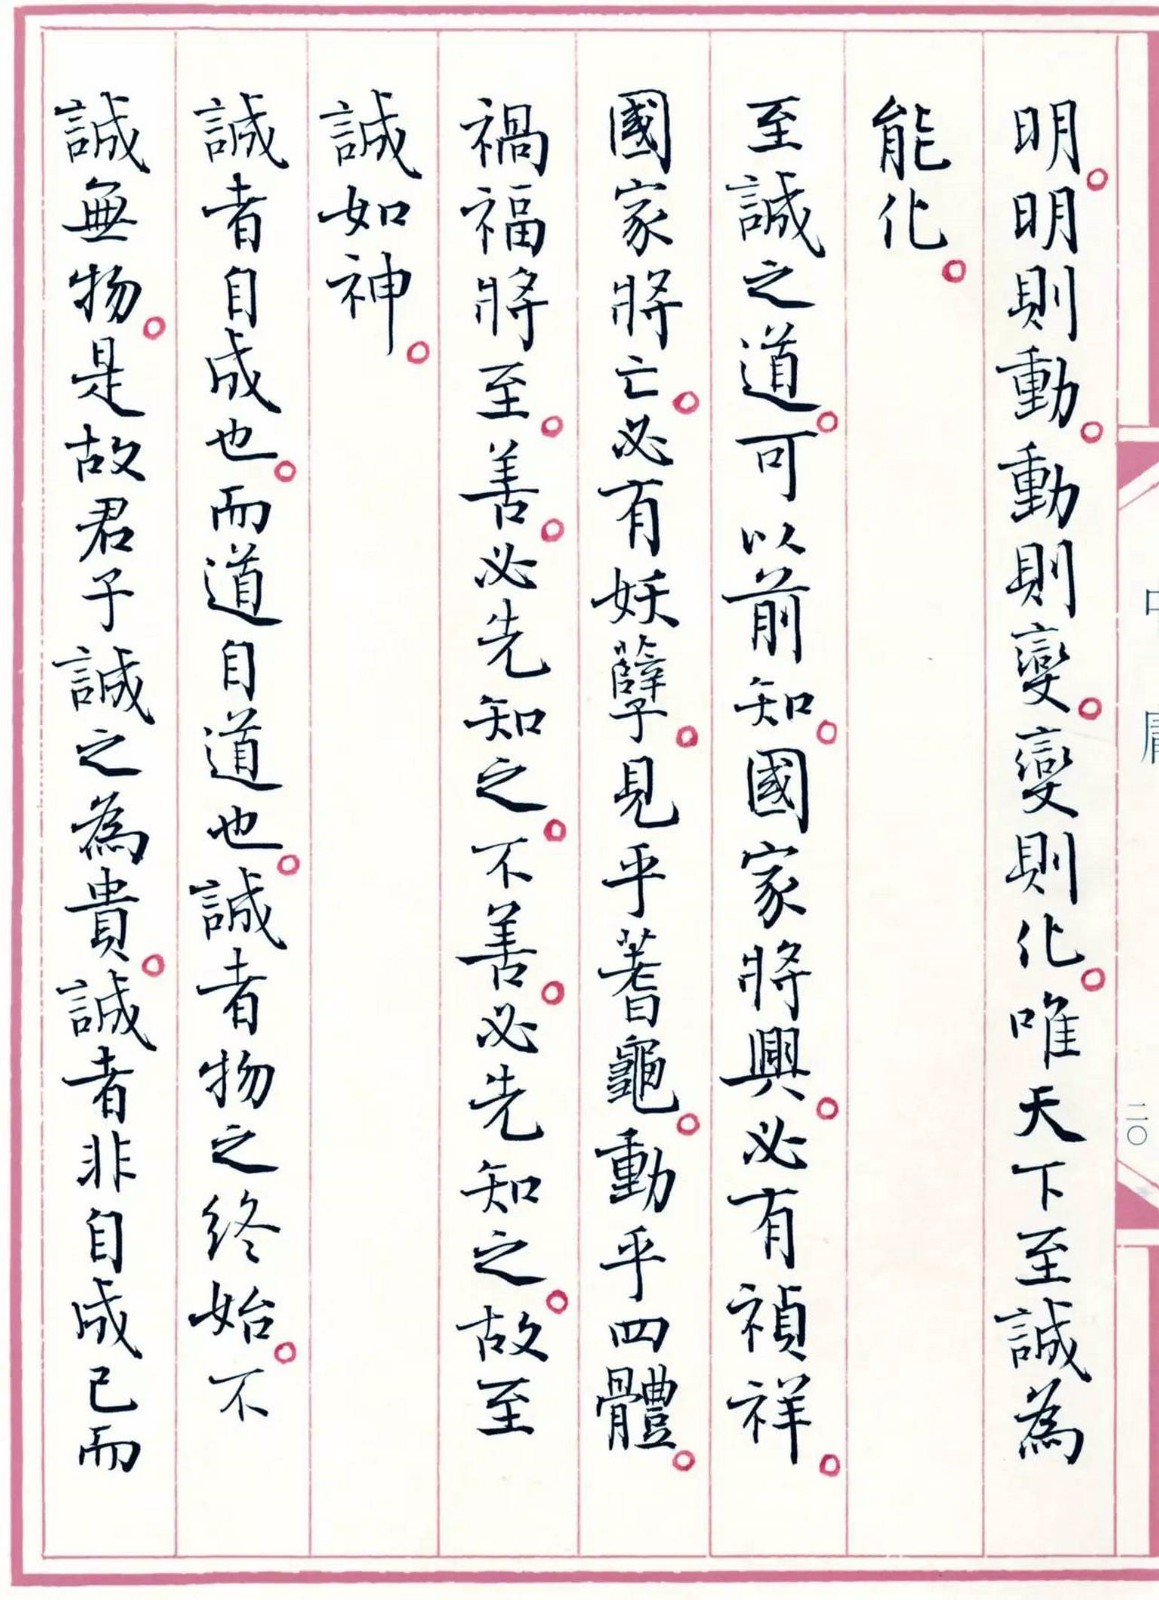 中庸
二〇
明。明則動。動則變。變則化。唯天下至誠為
能化。
至誠之道。可以前知。國家將興。必有禎祥。
國家將亡。必有妖孼。見乎蓍龜。動乎四體。
禍福將至。善。必先知之。不善。必先知之。故至
誠如神。
誠者自成也。而道自道也。誠者物之終始。不
誠無物。是故君子誠之為貴。誠者非自成己而